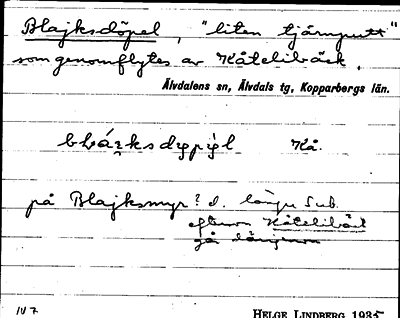 Blajksdöpel, "liten tjärnputt"
som genomflytes av Kåtelibäck.
Älvdalens sn, Älvdals tg, Kopparbergs län.
Kå.
på Blajksmyr? d. länju Sub.
efterm Kåtelibäck
gå
IV 7
HELGE LINDBERG 1935